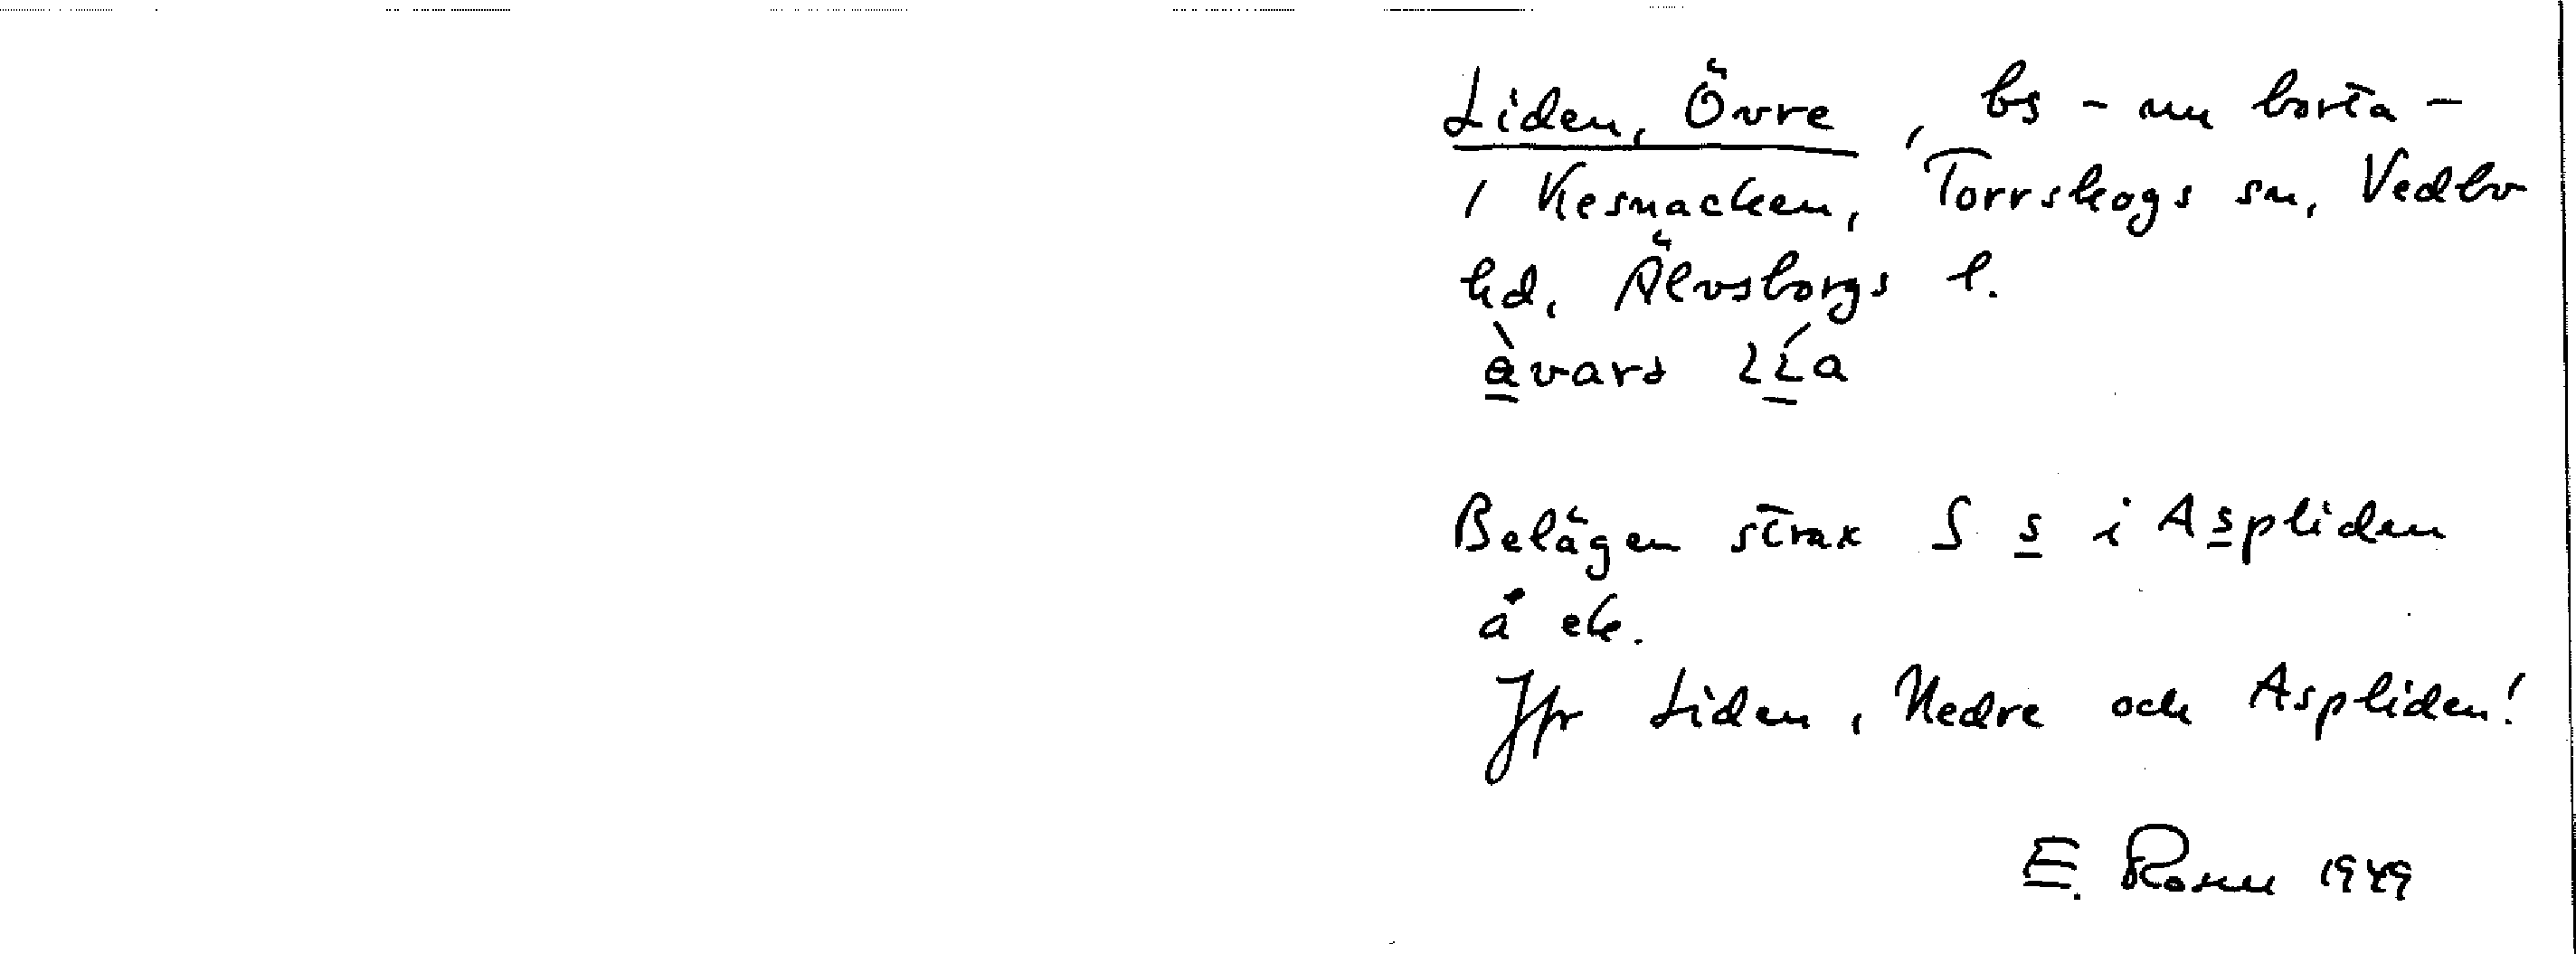 Liden, Övre, bs - nu borta -
i Kesnacken, Torrskogs sn, Vedbo
hd, Älvsborgs l.
Belägen strax S s i Aspliden
å ek.
Jfr Liden, Nedre och Aspliden!
E. Rosell 1949